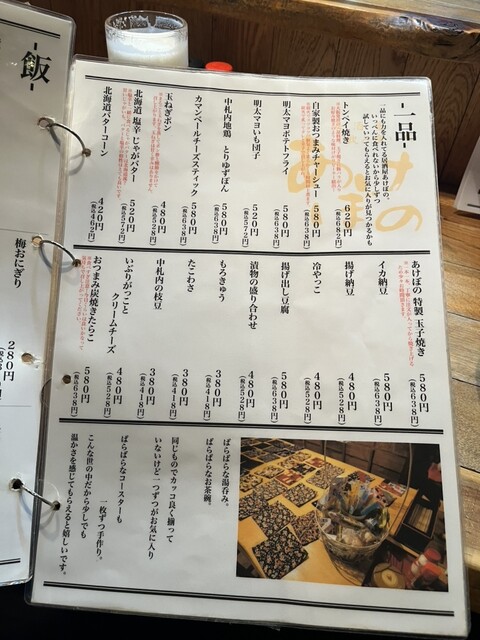 -一品-
一品にも力を入れてる居酒屋あけぼの。
いっぺんに食べれないから少しずつ
試していってもらえるとお気に入りが見つかるかも
あけぼの
トンペイ焼き
620円
(税込682円)
自家製おつまみチャーシュー
580円
(税込638円)
明太マヨポテトフライ
580円
(税込638円)
明太マヨいも団子
520円
(税込572円)
中札内地鶏 とりゆずぽん
580円
(税込638円)
カマンベールチーズスティック
580円
(税込638円)
玉ねぎポン
480円
(税込528円)
北海道 塩辛 じゃがバター
520円
(税込572円)
北海道バターコーン
420円
(税込462円)
あけぼの 特製 玉子焼き
580円
(税込638円)
イカ納豆
580円
(税込638円)
揚げ納豆
480円
(税込528円)
冷やっこ
480円
(税込528円)
揚げ出し豆腐
580円
(税込638円)
漬物の盛り合わせ
480円
(税込528円)
もろきゅう
380円
(税込418円)
たこわさ
380円
(税込418円)
中札内の枝豆
380円
(税込418円)
いぶりがっこと
クリームチーズ
480円
(税込528円)
おつまみ炭焼きたらこ
580円
(税込638円)
ばらばらな湯呑み。
ばらばらなお茶碗。
同じものでカッコ良く揃って
いないけど一つずつがお気に入り
ばらばらなコースターも
一枚ずつ手作り。
こんな世の中だから少しでも
温かさを感じてもらえると嬉しいです。
-飯-
梅おにぎり
280円